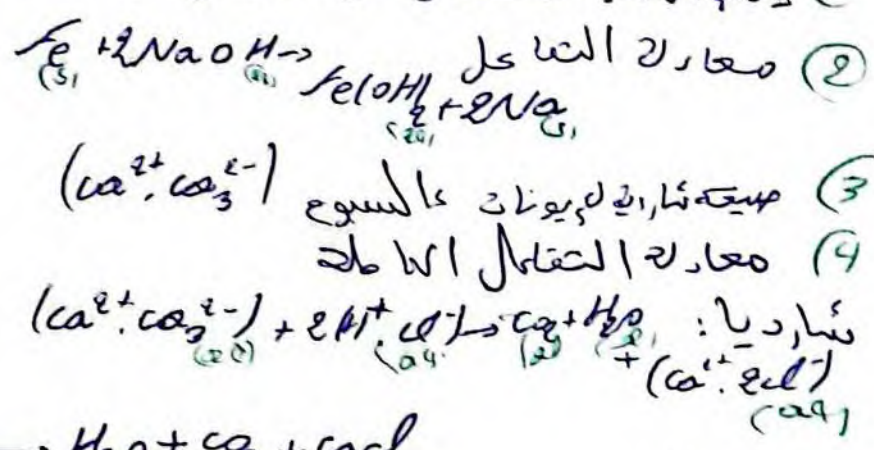 ② معادلة التفاعل Fe(s) + 2NaOH(aq) →
Fe(OH)2(aq) + 2Na(s)
③ صيغة شاردية (Ca²⁺, CO₃²⁻)
④ معادلة التفاعل الكاملة
شارديا: (Ca²⁺, CO₃²⁻) + 2(H⁺, Cl⁻)(aq) → CO₂ + H₂O
+ (Ca²⁺, 2Cl⁻)(aq)
H₂O + CO₂ + CaCl